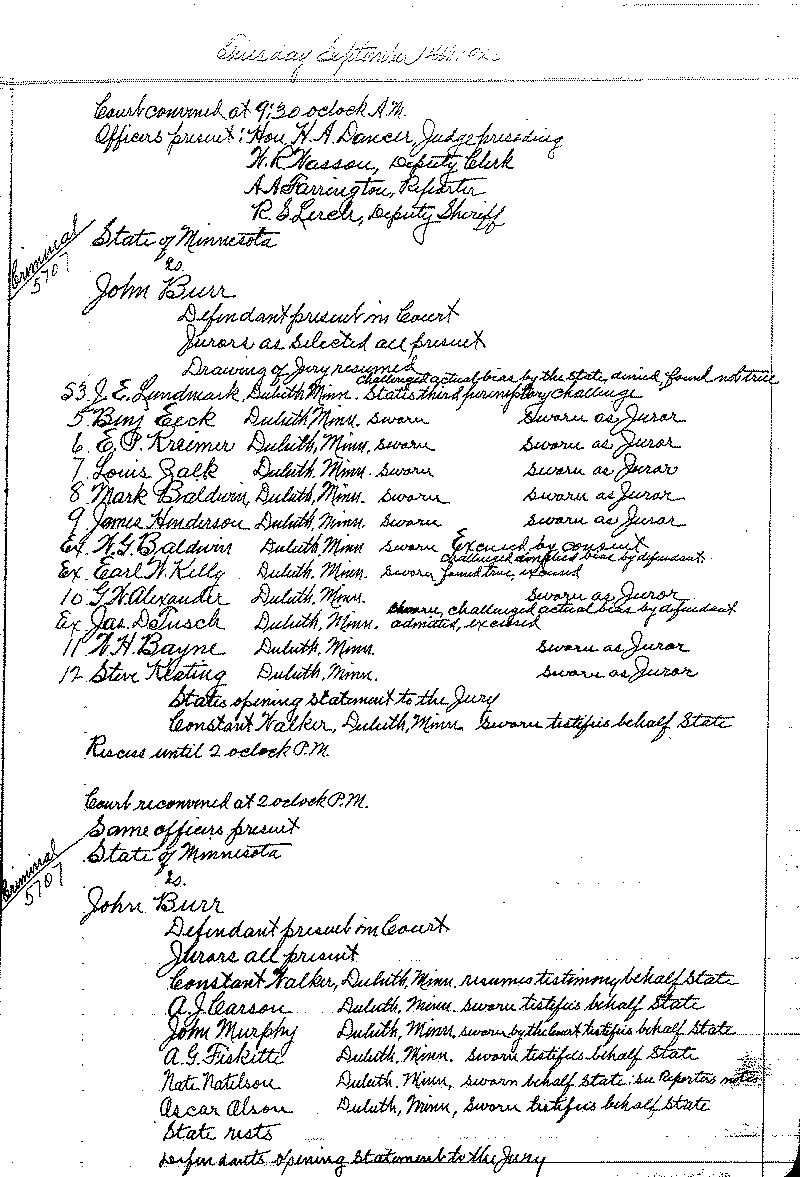 Thursday September
Court convened at 9:30 oclock A.M.
Officers present: Hon. H. A. Dancer, Judge presiding
W. R. Wasson, Deputy Clerk
A A Farrington, Reporter
R. S. Lerch, Deputy Sheriff
Criminal
5707
State of Minnesota
vs.
John Burr
Defendant present in Court
Jurors as selected all present
Drawing of Jury resumed
challenged actual bias by the State, denied, found not true
S3. J. E. Lundmark Duluth Minn. State's third peremptory challenge
5 Benj Eeck Duluth Minn. sworn Sworn as Juror
6. E. P. Kraemer Duluth, Minn. sworn Sworn as Juror
7. Louis Zalk Duluth, Minn. sworn Sworn as Juror
8. Mark Baldwin, Duluth, Minn. sworn Sworn as Juror
9 James Henderson Duluth, Minn. sworn Sworn as Juror
Ex. W. G. Baldwin Duluth, Minn sworn Excused by consent
challenged implied bias by defendant
Ex. Earl W. Kelly Duluth, Minn. sworn, found true, excused
10 G. W. Alexander Duluth, Minn. Sworn as Juror
sworn, challenged actual bias by defendant
Ex Jas. DeTusch Duluth, Minn. admitted, excused
11 W. H. Bayne Duluth, Minn. Sworn as Juror
12 Steve Keating Duluth, Minn. Sworn as Juror
States opening statement to the Jury
Constant Walker, Duluth, Minn. sworn testifies behalf State
Recess until 2 oclock P.M.
Court reconvened at 2 oclock P.M.
Same officers present
Criminal
5707
State of Minnesota
vs.
John Burr
Defendant present in Court
Jurors all present
Constant Walker, Duluth, Minn. resumes testimony behalf State
A. J. Carson Duluth, Minn. sworn testifies behalf State
John Murphy Duluth, Minn, sworn by the Court testifies behalf State
A. G. Fiskette Duluth, Minn. sworn testifies behalf State
Nate Natelson Duluth, Minn, sworn behalf State: see Reporters notes
Oscar Olson Duluth, Minn, sworn testifies behalf State
State rests
Defendants opening statement to the Jury